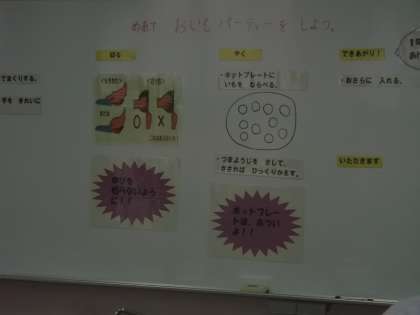 めあて おいもパーティーをしよう。
でまくりする。
手を きれいに
切る
○
×
ゆびを
切らないよう
に!!
やく
・ホットプレートに
いもを ならべる。
・つまようじを さして、
ささればひっくりかえす。
ホットプレー
トは、あつい
よ!!
できあがり!
・おさらに 入れる。
いただきます